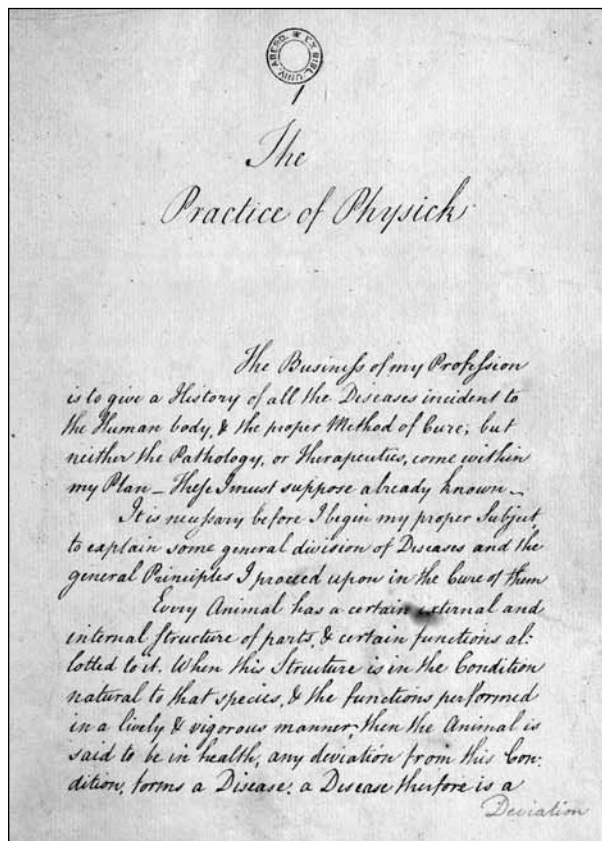 EX BIBL. UNIV. ABERD.
1
The
Practice of Physick
The Business of my Profession
is to give a History of all the Diseases incident to
the Human body, & the proper Method of Cure; but
neither the Pathology, or Therapeutics, come within
my Plan – These I must suppose already known –
It is necessary before I begin my proper Subject,
to explain some general division of Diseases and the
general Principles I proceed upon in the Cure of them
Every Animal has a certain external and
internal structure of parts, & certain functions al:
lotted to it. When this Structure is in the Condition
natural to that species, & the functions performed
in a lively & vigorous manner then the Animal is
said to be in health, any deviation from this Con:
dition, forms a Disease: a Disease therfore is a
Deviation